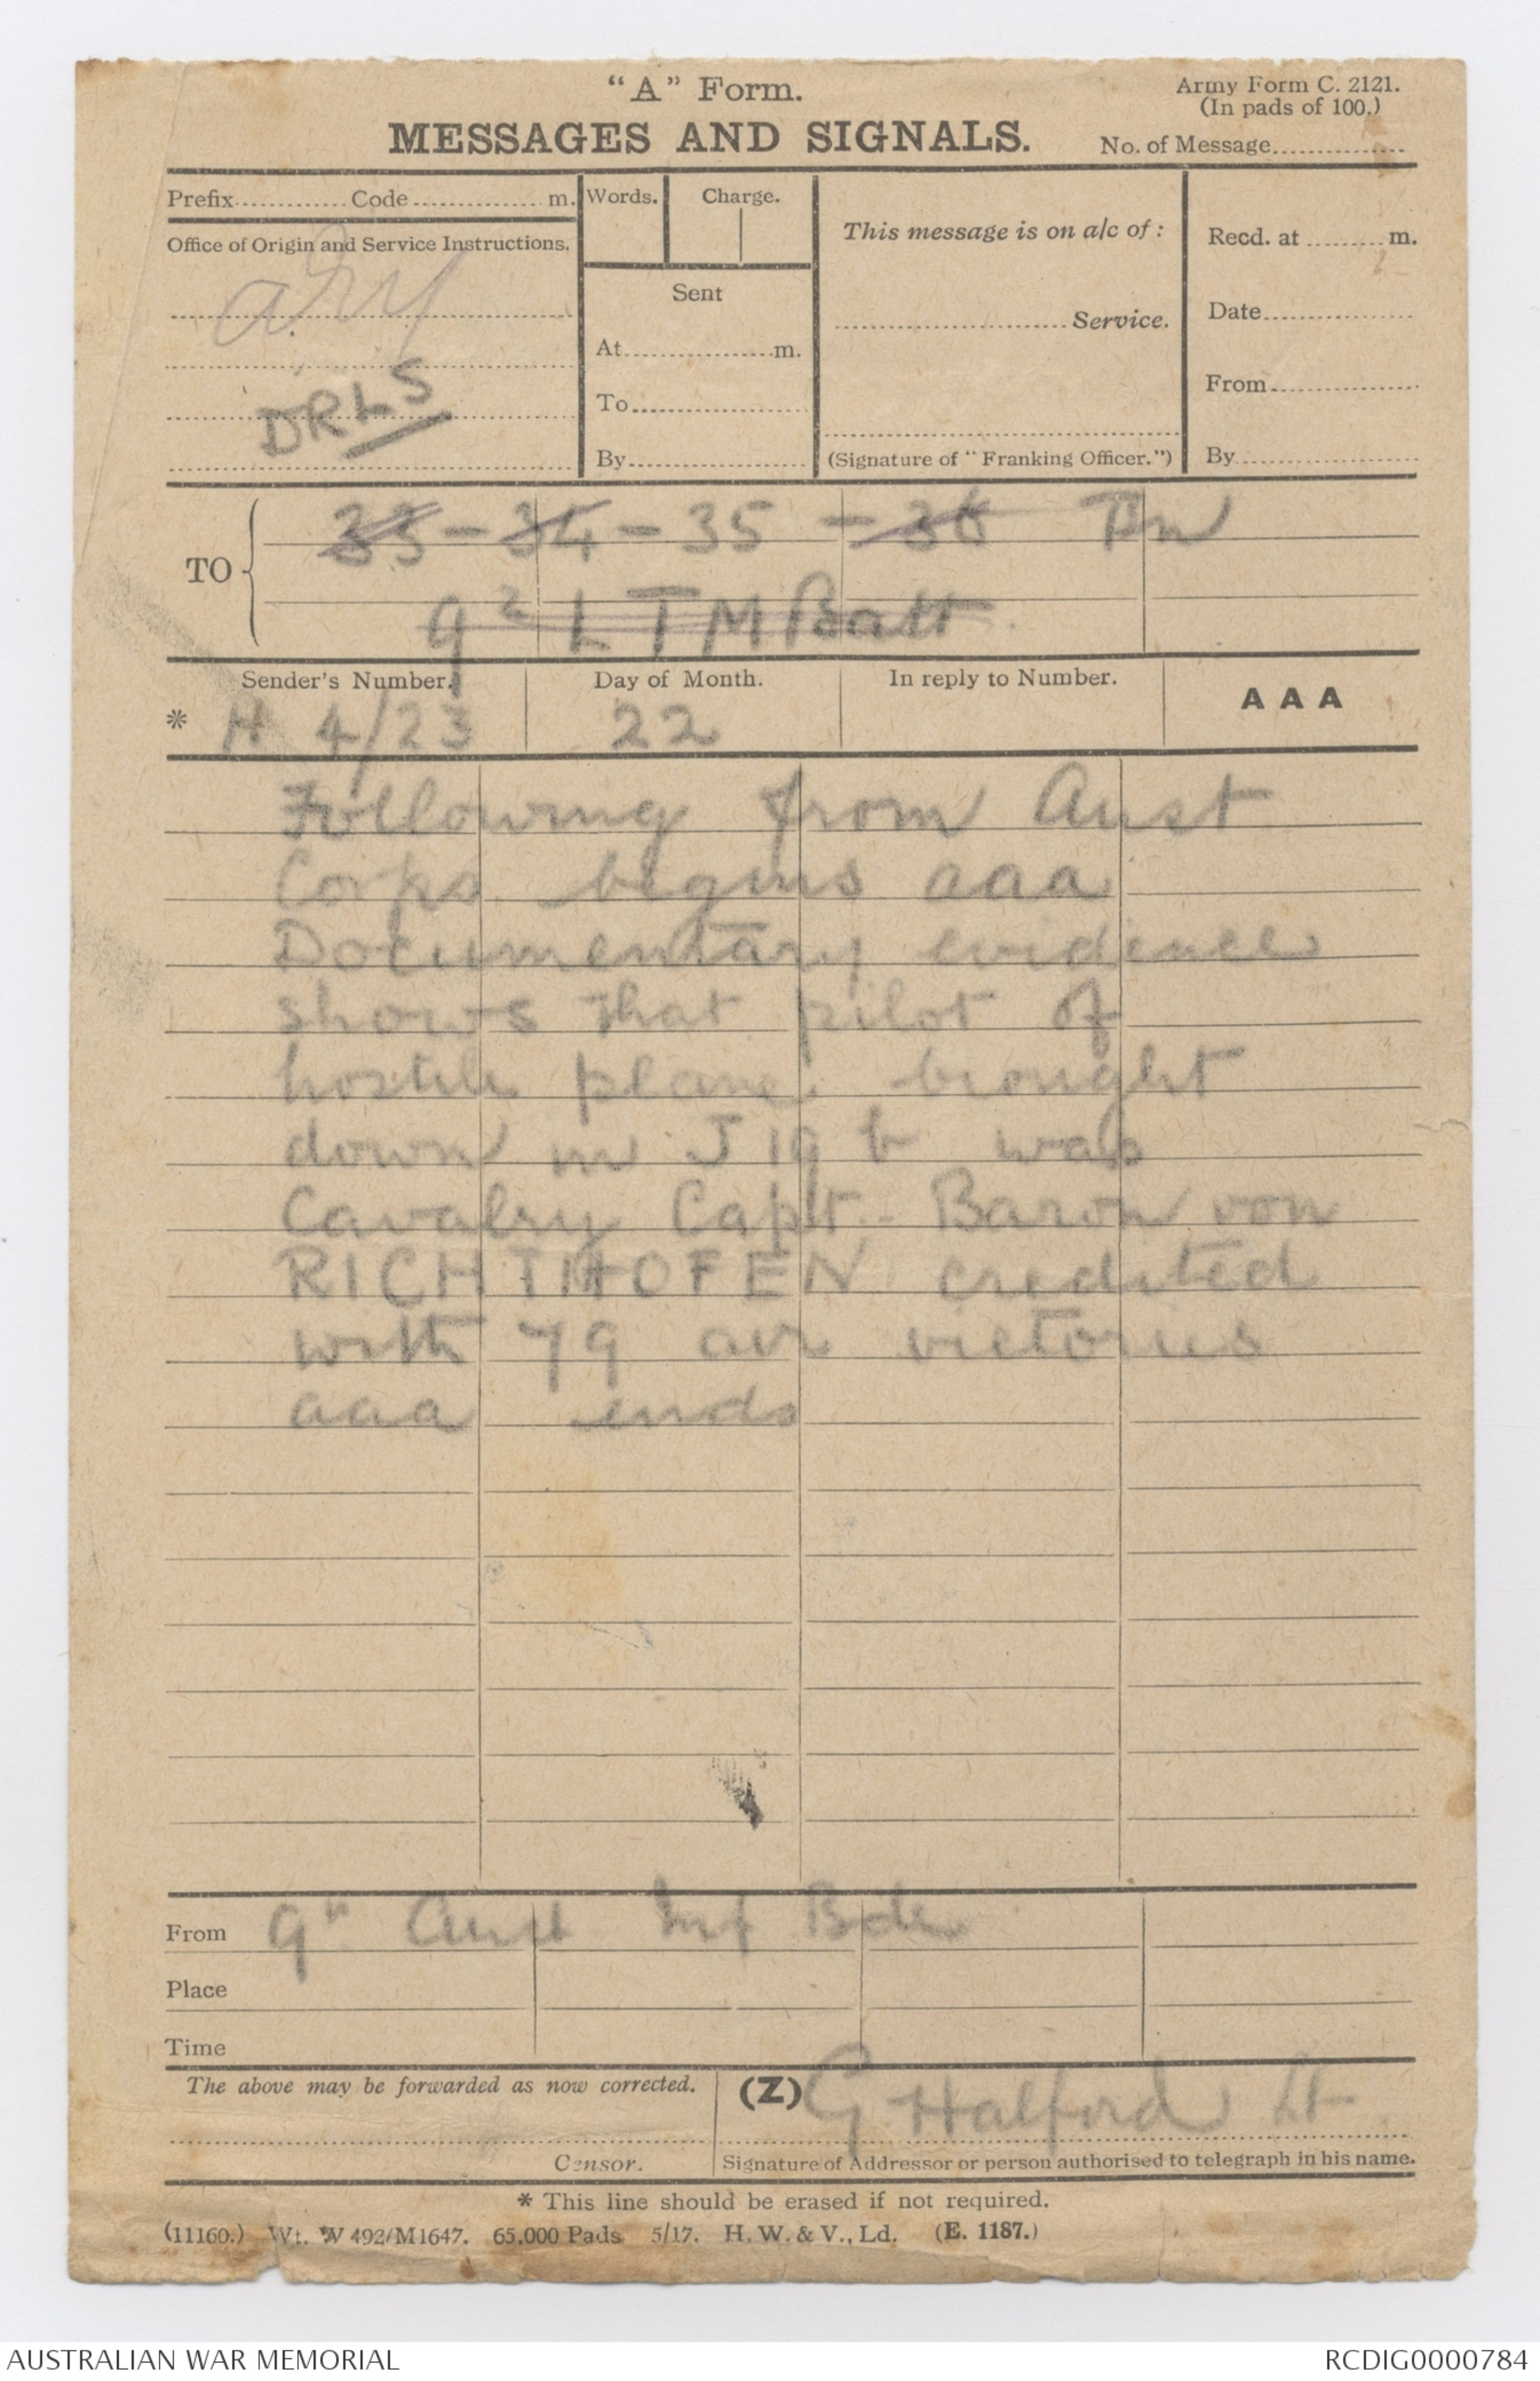 “A” Form.
Army Form C. 2121.
(In pads of 100.)
MESSAGES AND SIGNALS.
No. of Message...............
Prefix............. Code............... m.
Words.
Charge.
Office of Origin and Service Instructions.
DRLS
Sent
At..................m.
To.....................
By.....................
This message is on a/c of :
...........................Service.
(Signature of “ Franking Officer.”)
Recd. at ......... m.
Date..................
From..................
By.....................
TO
33 - 34 - 35 - 36 Bn
9th L T M Batt
Sender's Number.
Day of Month.
In reply to Number.
AAA
* H 4/23
22
Following from Aust
Corps begins aaa
Documentary evidence
shows that pilot of
hostile plane brought
down in J 19 b was
Cavalry Capt. Baron von
RICHTHOFEN credited
with 79 air victories
aaa ends
From 9th Aust Inf Bde
Place
Time
The above may be forwarded as now corrected.
(Z) G Halford Lt
Censor.
Signature of Addressor or person authorised to telegraph in his name.
* This line should be erased if not required.
(11160.) Wt. W 492/M1647. 65,000 Pads 5/17. H. W. & V., Ld. (E. 1187.)
AUSTRALIAN WAR MEMORIAL
RCDIG0000784